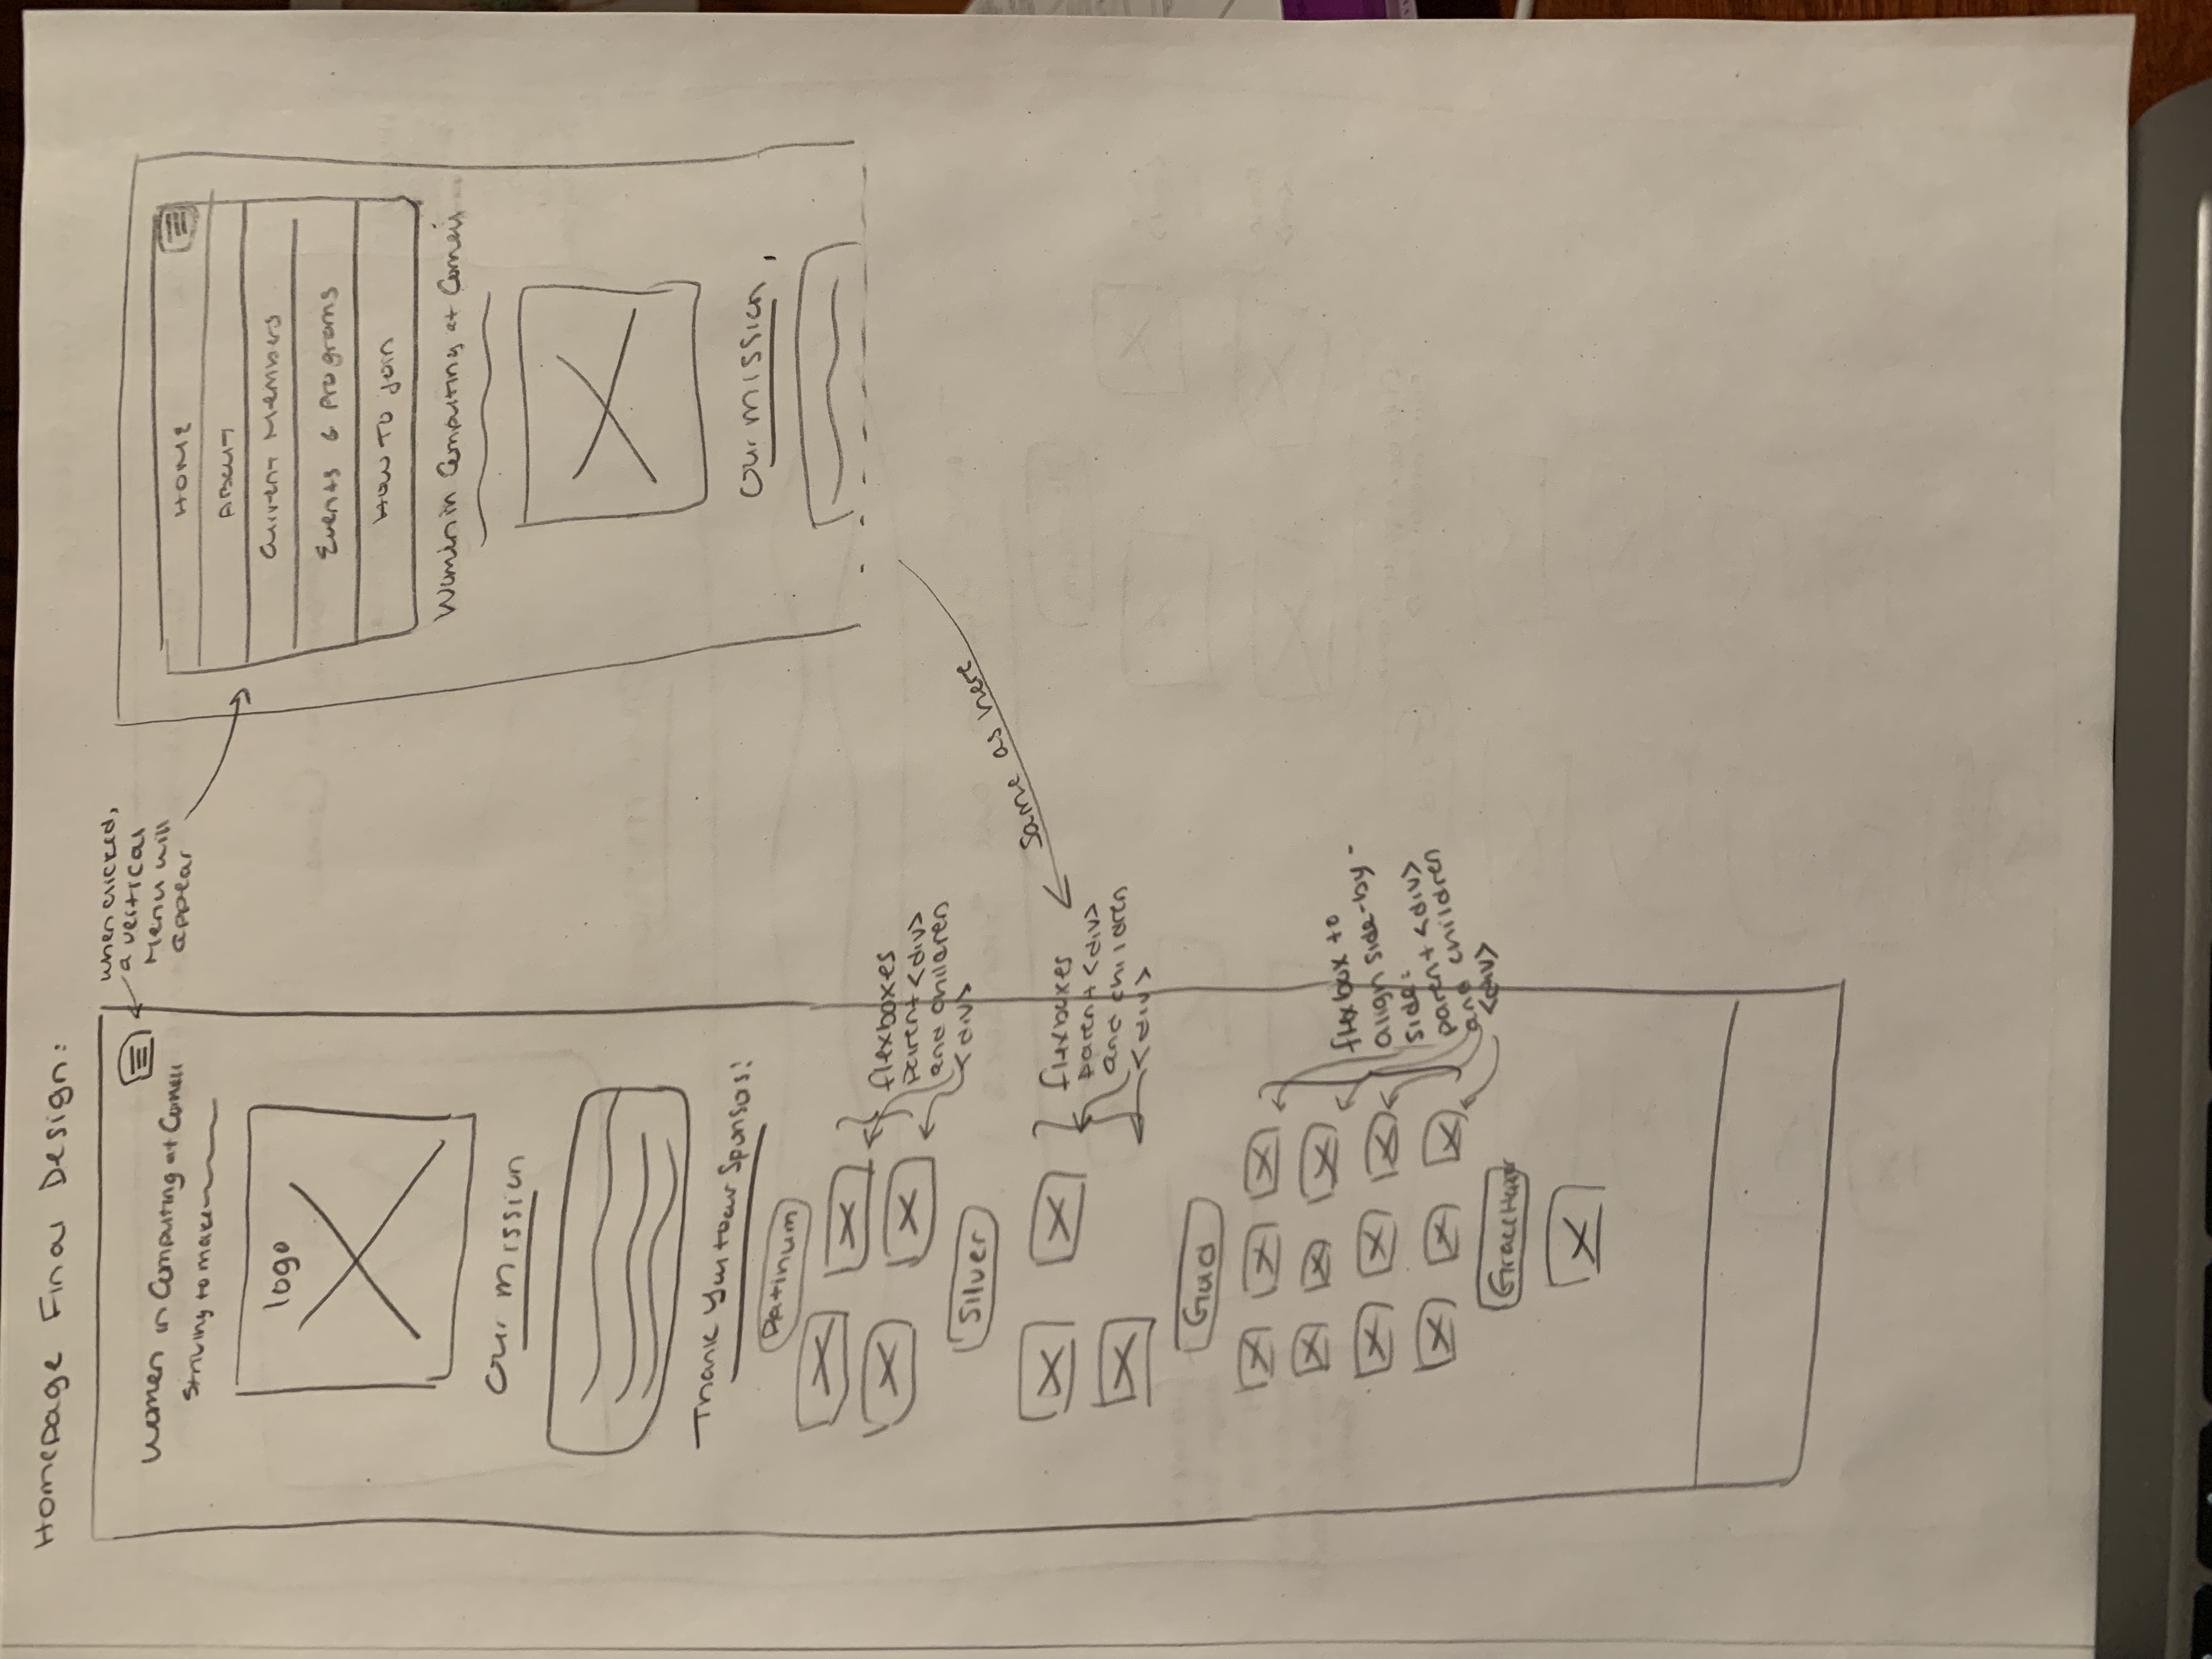 Homepage Final Design:
when clicked,
a vertical
Menu will
appear
Women in Computing at Cornell
Striving to make
logo
Our Mission
Thank You to our Sponsors!
Platinum
flexboxes
parent <div>
and children
<div>
Silver
flexboxes
parent <div>
and children
<div>
Gold
flexbox to
align side-by-
side:
parent <div>
and children
<div>
Grace Hopper
HOME
ABOUT
Current Members
Events & Programs
How To Join
Women in Computing at Cornell
Our Mission
Same as here